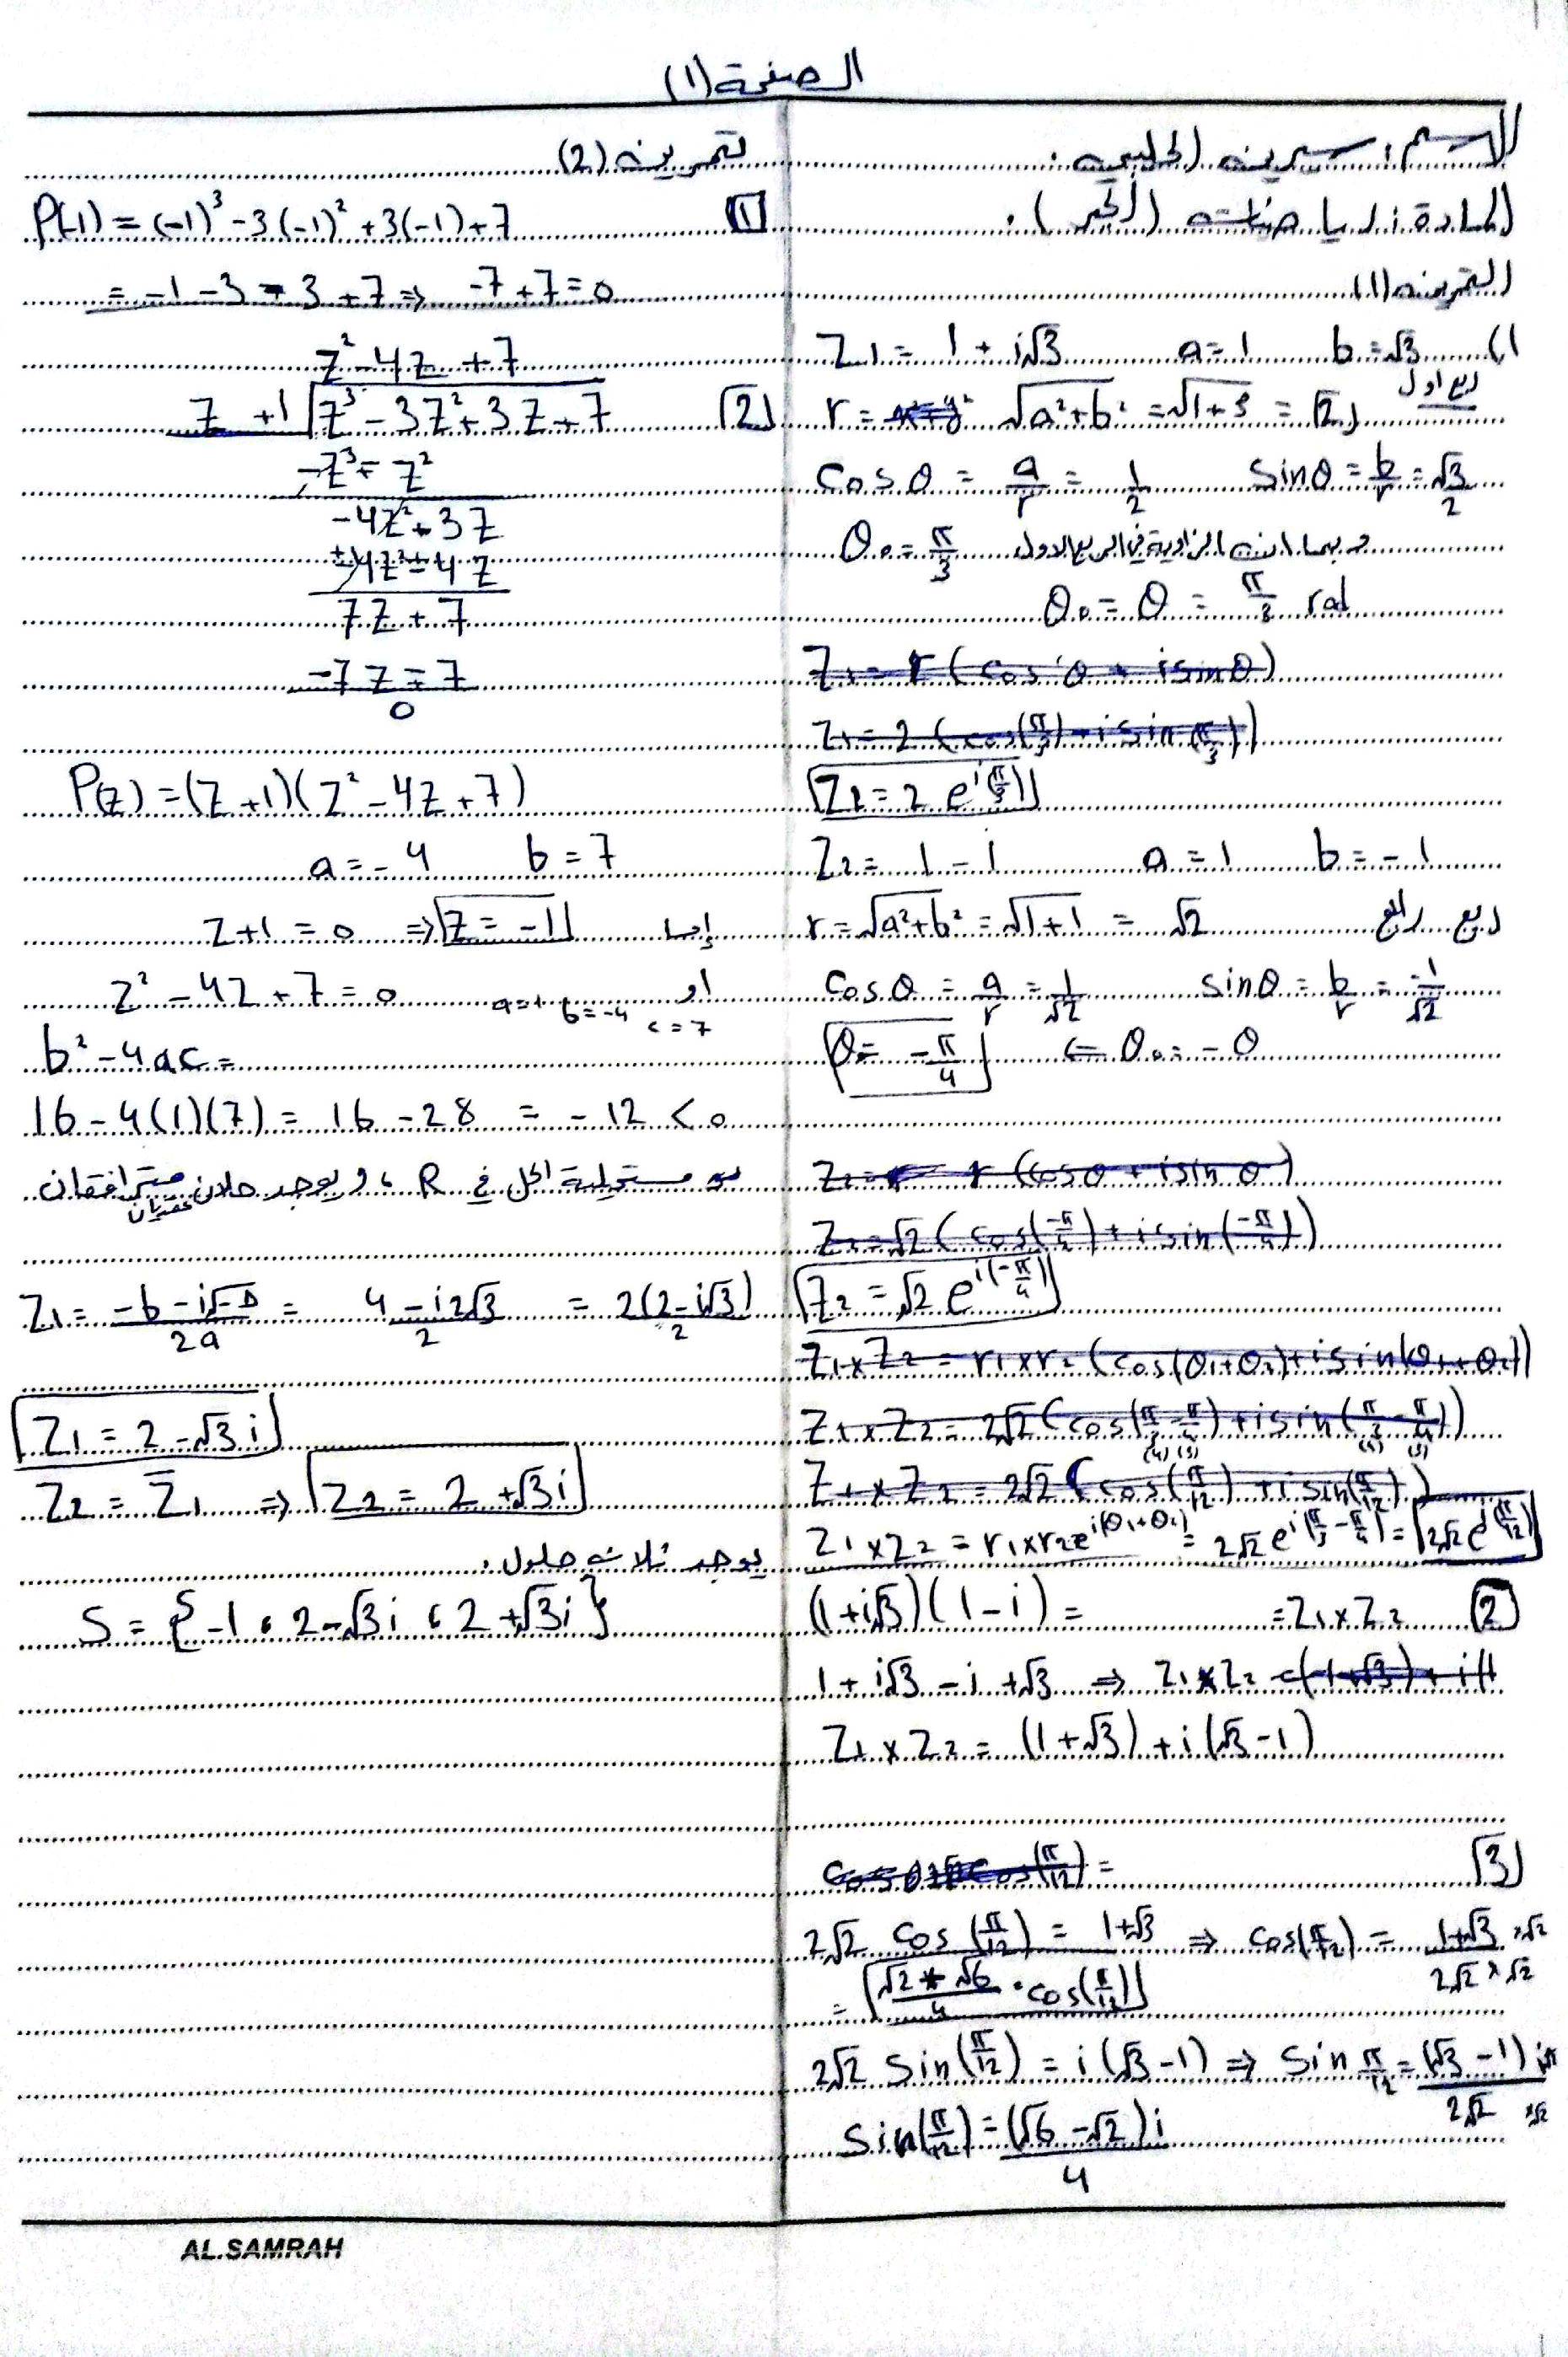 الصفحة (1)
الاسم: سيرين الحلبي.
المادة: رياضيات (الجبر).
التمرين (1)
1) Z1 = 1 + i√3 a = 1 b = √3
ربع أول
r = x²+y² √a²+b² = √1+3 = 2
cos θ = a/r = 1/2 sin θ = b/r = √3/2
وبما أن الزاوية في الربع الأول θ0 = π/3
θ0 = θ = π/3 rad
Z1 = r (cos θ + i sin θ)
Z1 = 2 (cos(π/3) + i sin(π/3))
Z1 = 2 e^i(π/3)
Z2 = 1 - i a = 1 b = -1
r = √a²+b² = √1+1 = √2 ربع رابع
cos θ = a/r = 1/√2 sin θ = b/r = -1/√2
θ = -π/4 ⇐ θ0 = -θ
Z2 = r (cos θ + i sin θ)
Z2 = √2 (cos(-π/4) + i sin(-π/4))
Z2 = √2 e^i(-π/4)
Z1 × Z2 = r1 × r2 (cos(θ1+θ2) + i sin(θ1+θ2))
Z1 × Z2 = 2√2 (cos(π/3 - π/4) + i sin(π/3 - π/4))
(4) (3) (4) (3)
Z1 × Z2 = 2√2 (cos(π/12) + i sin(π/12))
Z1 × Z2 = r1×r2 e^i(θ1+θ2) = 2√2 e^i(π/3 - π/4) = 2√2 e^i(π/12)
2 (1+i√3)(1-i) = = Z1 × Z2
1 + i√3 - i + √3 ⇒ Z1 × Z2 = (1+√3) + i(1
Z1 × Z2 = (1+√3) + i(√3-1)
3 cos(π/12) =
2√2 cos(π/12) = 1+√3 ⇒ cos(π/12) = 1+√3 ×√2 / 2√2 ×√2
= √2 + √6 / 4 = cos(π/12)
2√2 sin(π/12) = i(√3-1) ⇒ sin π/12 = (√3-1) i ×√2 / 2√2 ×√2
sin(π/12) = (√6 - √2) i / 4
تمرين (2)
1 P(-1) = (-1)³ - 3(-1)² + 3(-1) + 7
= -1 - 3 - 3 + 7 ⇒ -7 + 7 = 0
z² - 4z + 7
2 z + 1 z³ - 3z² + 3z + 7
-z³ ∓ z²
-4z² + 3z
±4z² ± 4z
7z + 7
-7z ∓ 7
0
P(z) = (z+1)(z² - 4z + 7)
a = -4 b = 7
إما z+1 = 0 ⇒ z = -1
أو z² - 4z + 7 = 0 a=1 b=-4 c=7
b² - 4ac =
16 - 4(1)(7) = 16 - 28 = -12 < 0
مستحيلة الحل في R، ويوجد حلان عقديان مترافقان
Z1 = -b - i√-Δ / 2a = 4 - i2√3 / 2 = 2(2 - i√3) / 2
Z1 = 2 - √3 i
Z2 = Z̄1 ⇒ Z2 = 2 + √3 i
يوجد ثلاث حلول.
S = { -1 ، 2 - √3 i ، 2 + √3 i }
AL.SAMRAH